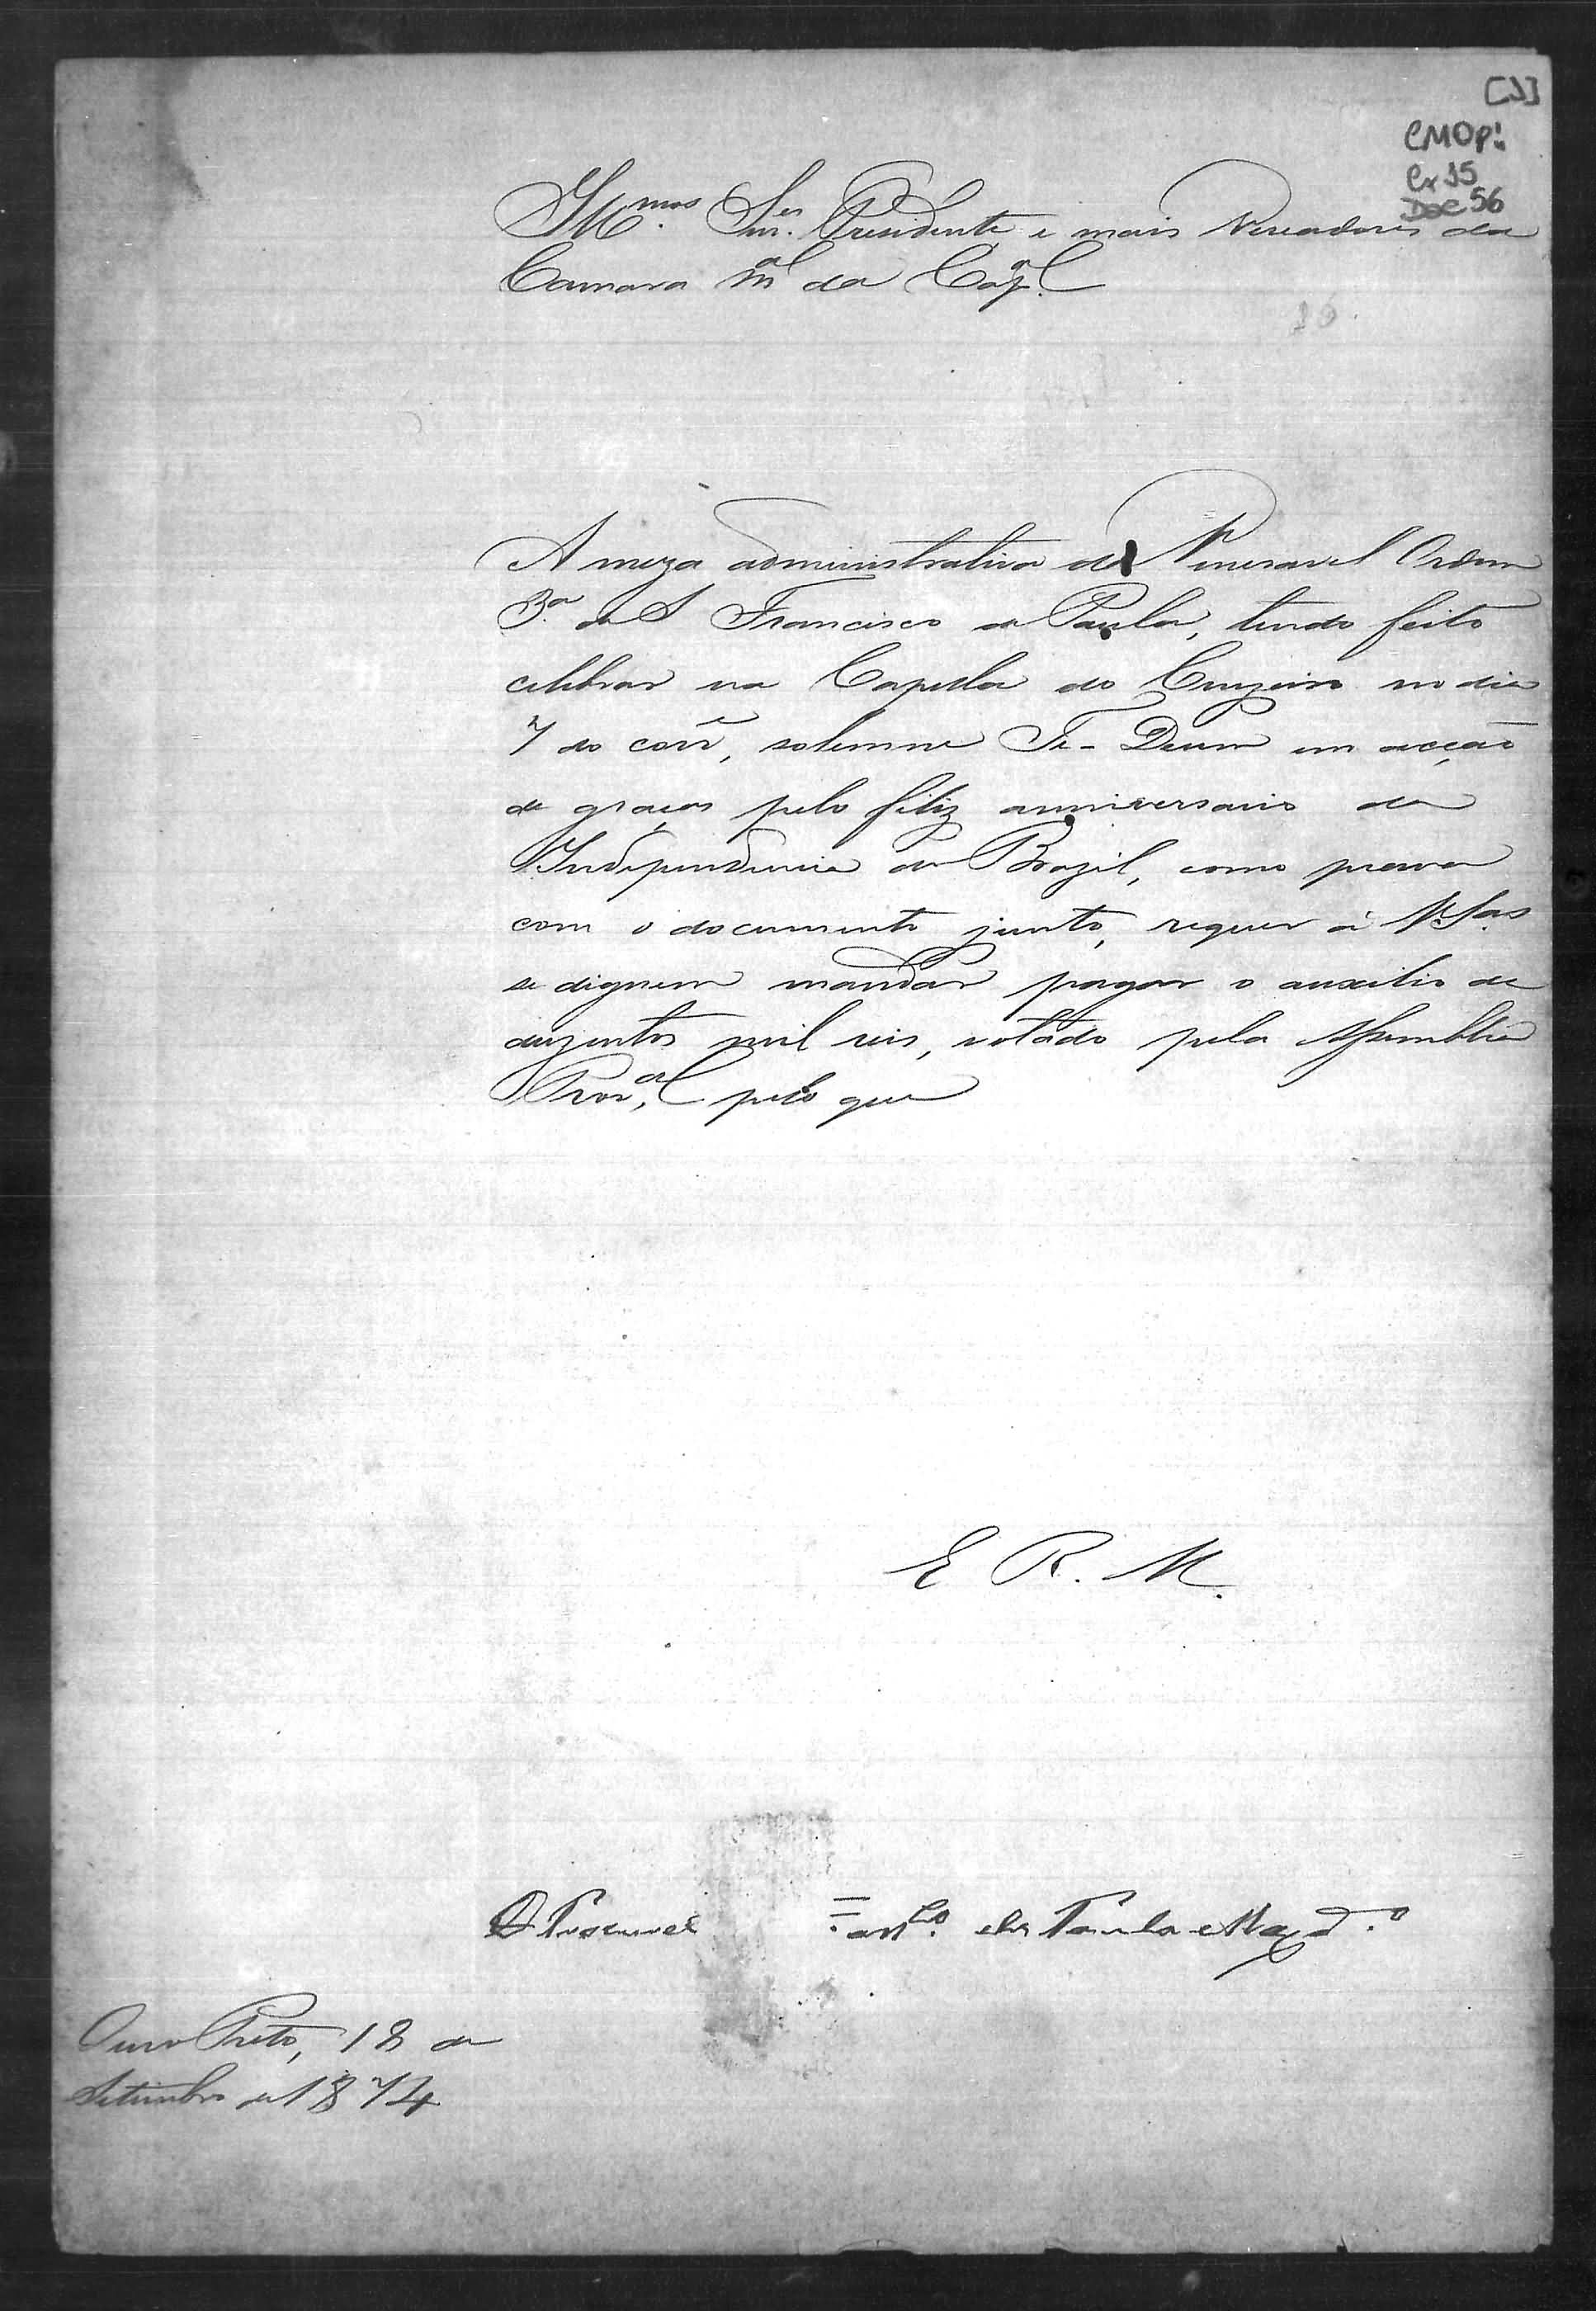 [1]
CMOP:
Cx 15
Doc 56
Illmos. Snres. Presidente e mais Vereadores da
Camara Mal da Capal.
A meza administrativa da Veneravel Ordem
3.a de S Francisco de Paula, tendo feito
celebrar na Capella do Cruzeiro no dia
7 do corre, solemne Te-Deum em acção
de graças pelo feliz anniversario da
Independencia do Brazil, como prova
com o documento junto, requer á V.Sas.
se dignem mandar pagar o auxilio de
duzentos mil reis, votado pela Assemblea
Proval, pelo que
E R. M.
O Procurador
de Paula Mago.
Ouro Preto, 18 de
Setembro de 1874